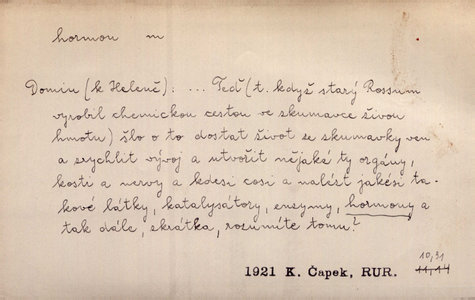 hormon m
Domin (k Heleně): ... Teď (t. když starý Rossum
vyrobil chemickou cestou ve skumavce živou
hmotu) šlo o to dostat život ze skumavky ven
a zrychlit vývoj a utvořit nějaké ty orgány,
kosti a nervy a kdesi cosi a nalézt jakési ta-
kové látky, katalysátory, enzymy, hormony a
tak dále, zkrátka, rozumíte tomu?
10,31
1921 K. Čapek, RUR. 11,14